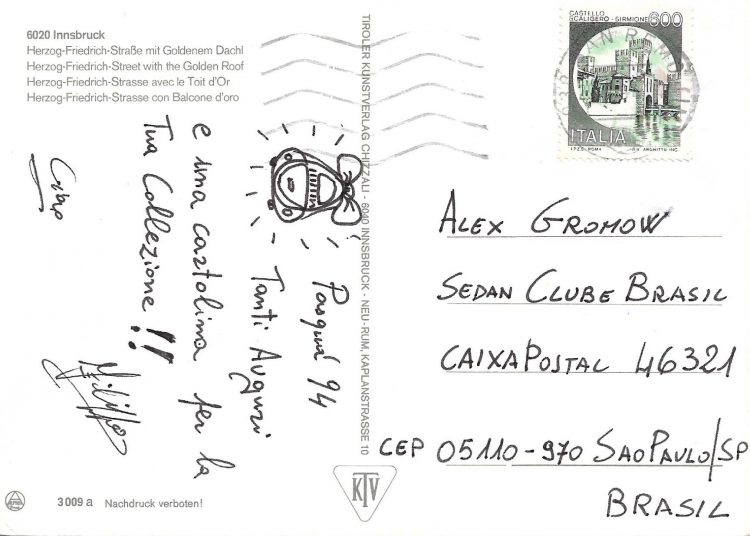 6020 Innsbruck
Herzog-Friedrich-Straße mit Goldenem Dachl
Herzog-Friedrich-Street with the Golden Roof
Herzog-Friedrich-Strasse avec le Toit d'Or
Herzog-Friedrich-Strasse con Balcone d'oro
Pasqua 94
Tanti Auguri
e una cartolina per la
Tua Collezione!!
Ciao
TIROLER KUNSTVERLAG CHIZZALI - 6040 INNSBRUCK - NEU-RUM, KAPLANSTRASSE 10
CASTELLO
SCALIGERO - SIRMIONE
600
ITALIA
I.P.Z.S. ROMA
ALEX GROMOW
SEDAN CLUBE BRASIL
CAIXA POSTAL 46321
CEP 05110-970 SAO PAULO/SP
BRASIL
KTV
3009 a Nachdruck verboten!